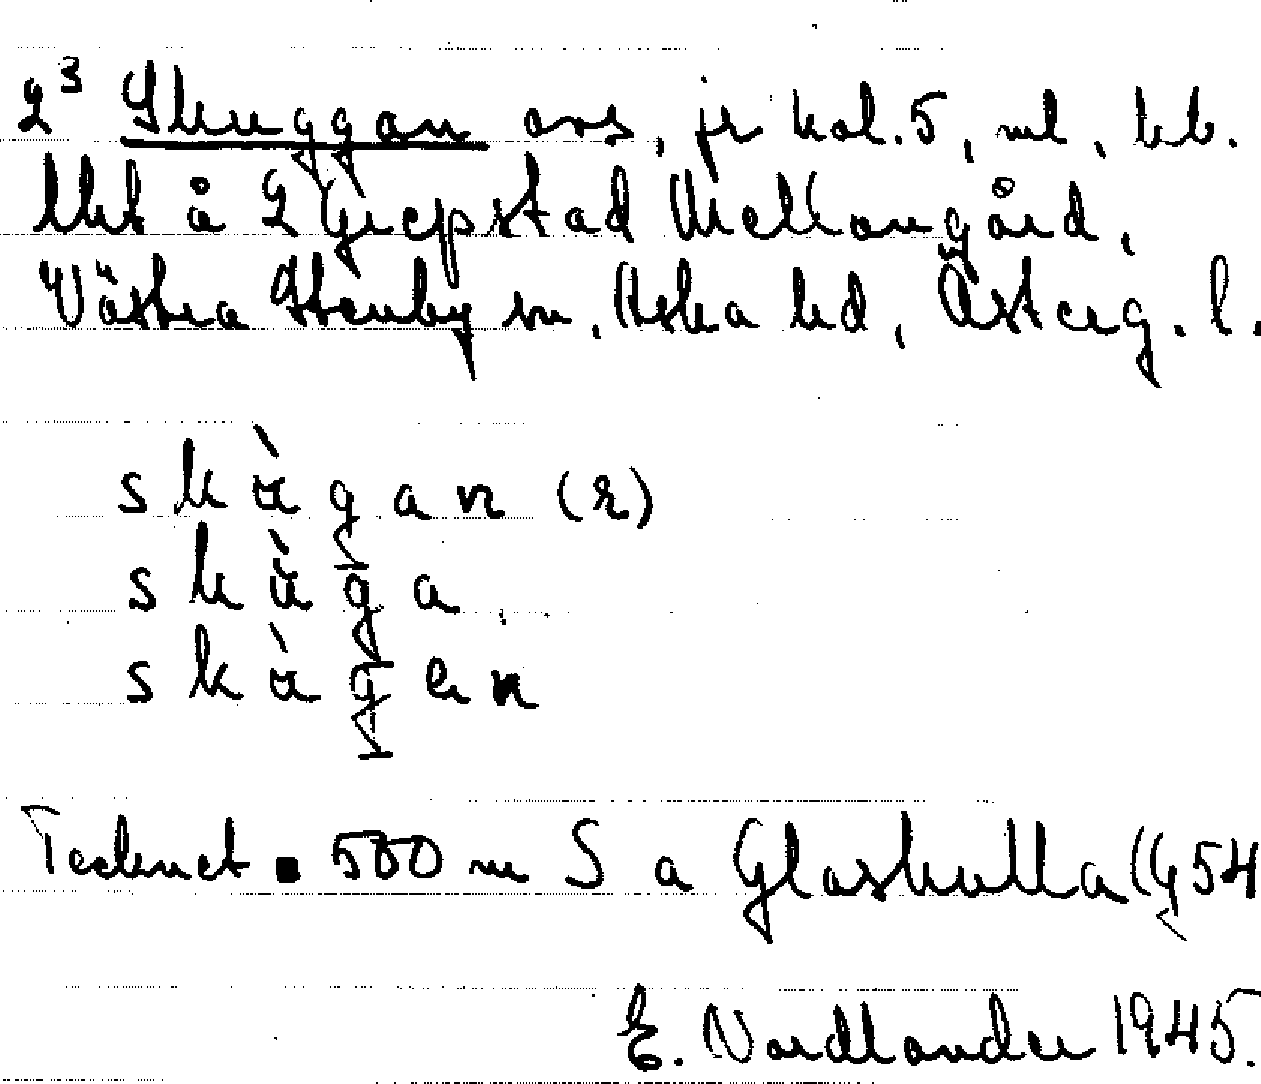 2³ Skuggan avs, jr kol. 5, ml, bb.
tllht å 2 Grepstad Mellangård,
Västra Stenby sn, Aska hd, Österg. l.
s k ὰ g a n (r)
s k ὰ g a
s k ὰ g e n
Tecknet ■ 500 m S a Glaskulla (G54
E. Nordlander 1945.